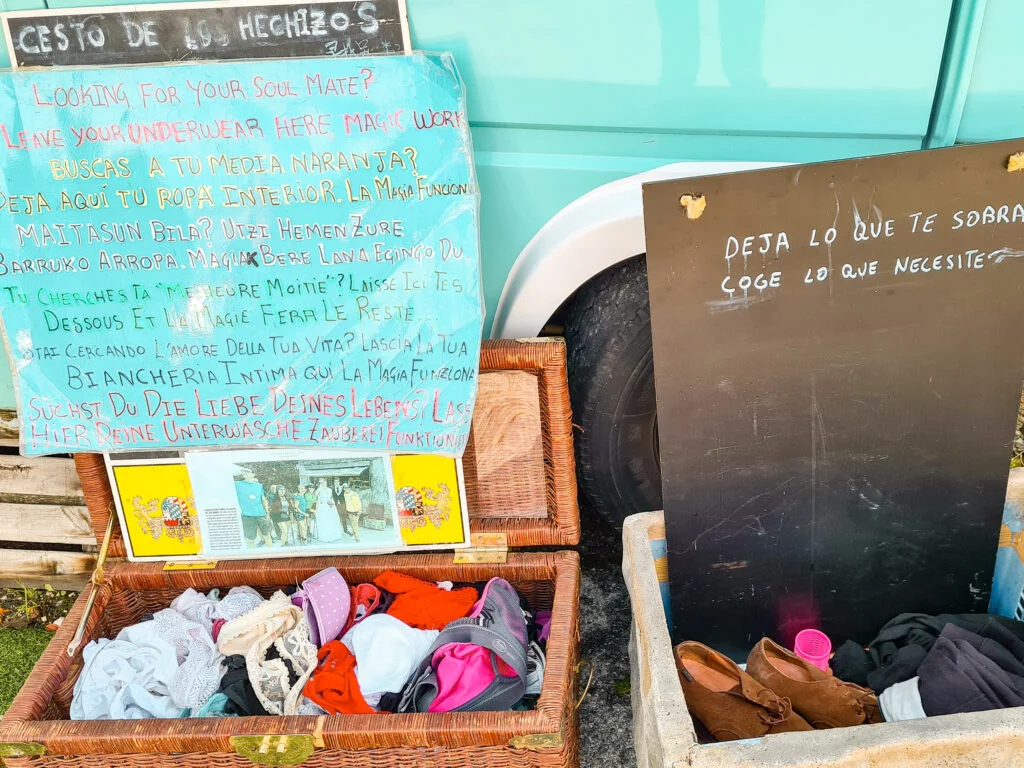 CESTO DE LOS HECHIZOS
LOOKING FOR YOUR SOUL MATE?
LEAVE YOUR UNDERWEAR HERE, MAGIC WORK
BUSCAS A TU MEDIA NARANJA?
DEJA AQUÍ TU ROPA INTERIOR. LA MAGIA FUNCIONA
MAITASUN BILA? UTZI HEMEN ZURE
BARRUKO ARROPA. MAGIAK BERE LANA EGINGO DU.
TU CHERCHES TA "MEILLEURE MOITIE"? LAISSE ICI TES
DESSOUS ET LA MAGIE FERA LE RESTE...
STAI CERCANDO L'AMORE DELLA TUA VITA? LASCIA LA TUA
BIANCHERIA INTIMA QUI LA MAGIA FUNZIONA
SUCHST DU DIE LIEBE DEINES LEBENS? LASS
HIER DEINE UNTERWASCHE ZAUBEREI FUNKTIONI
DEJA LO QUE TE SOBRA
COGE LO QUE NECESITES